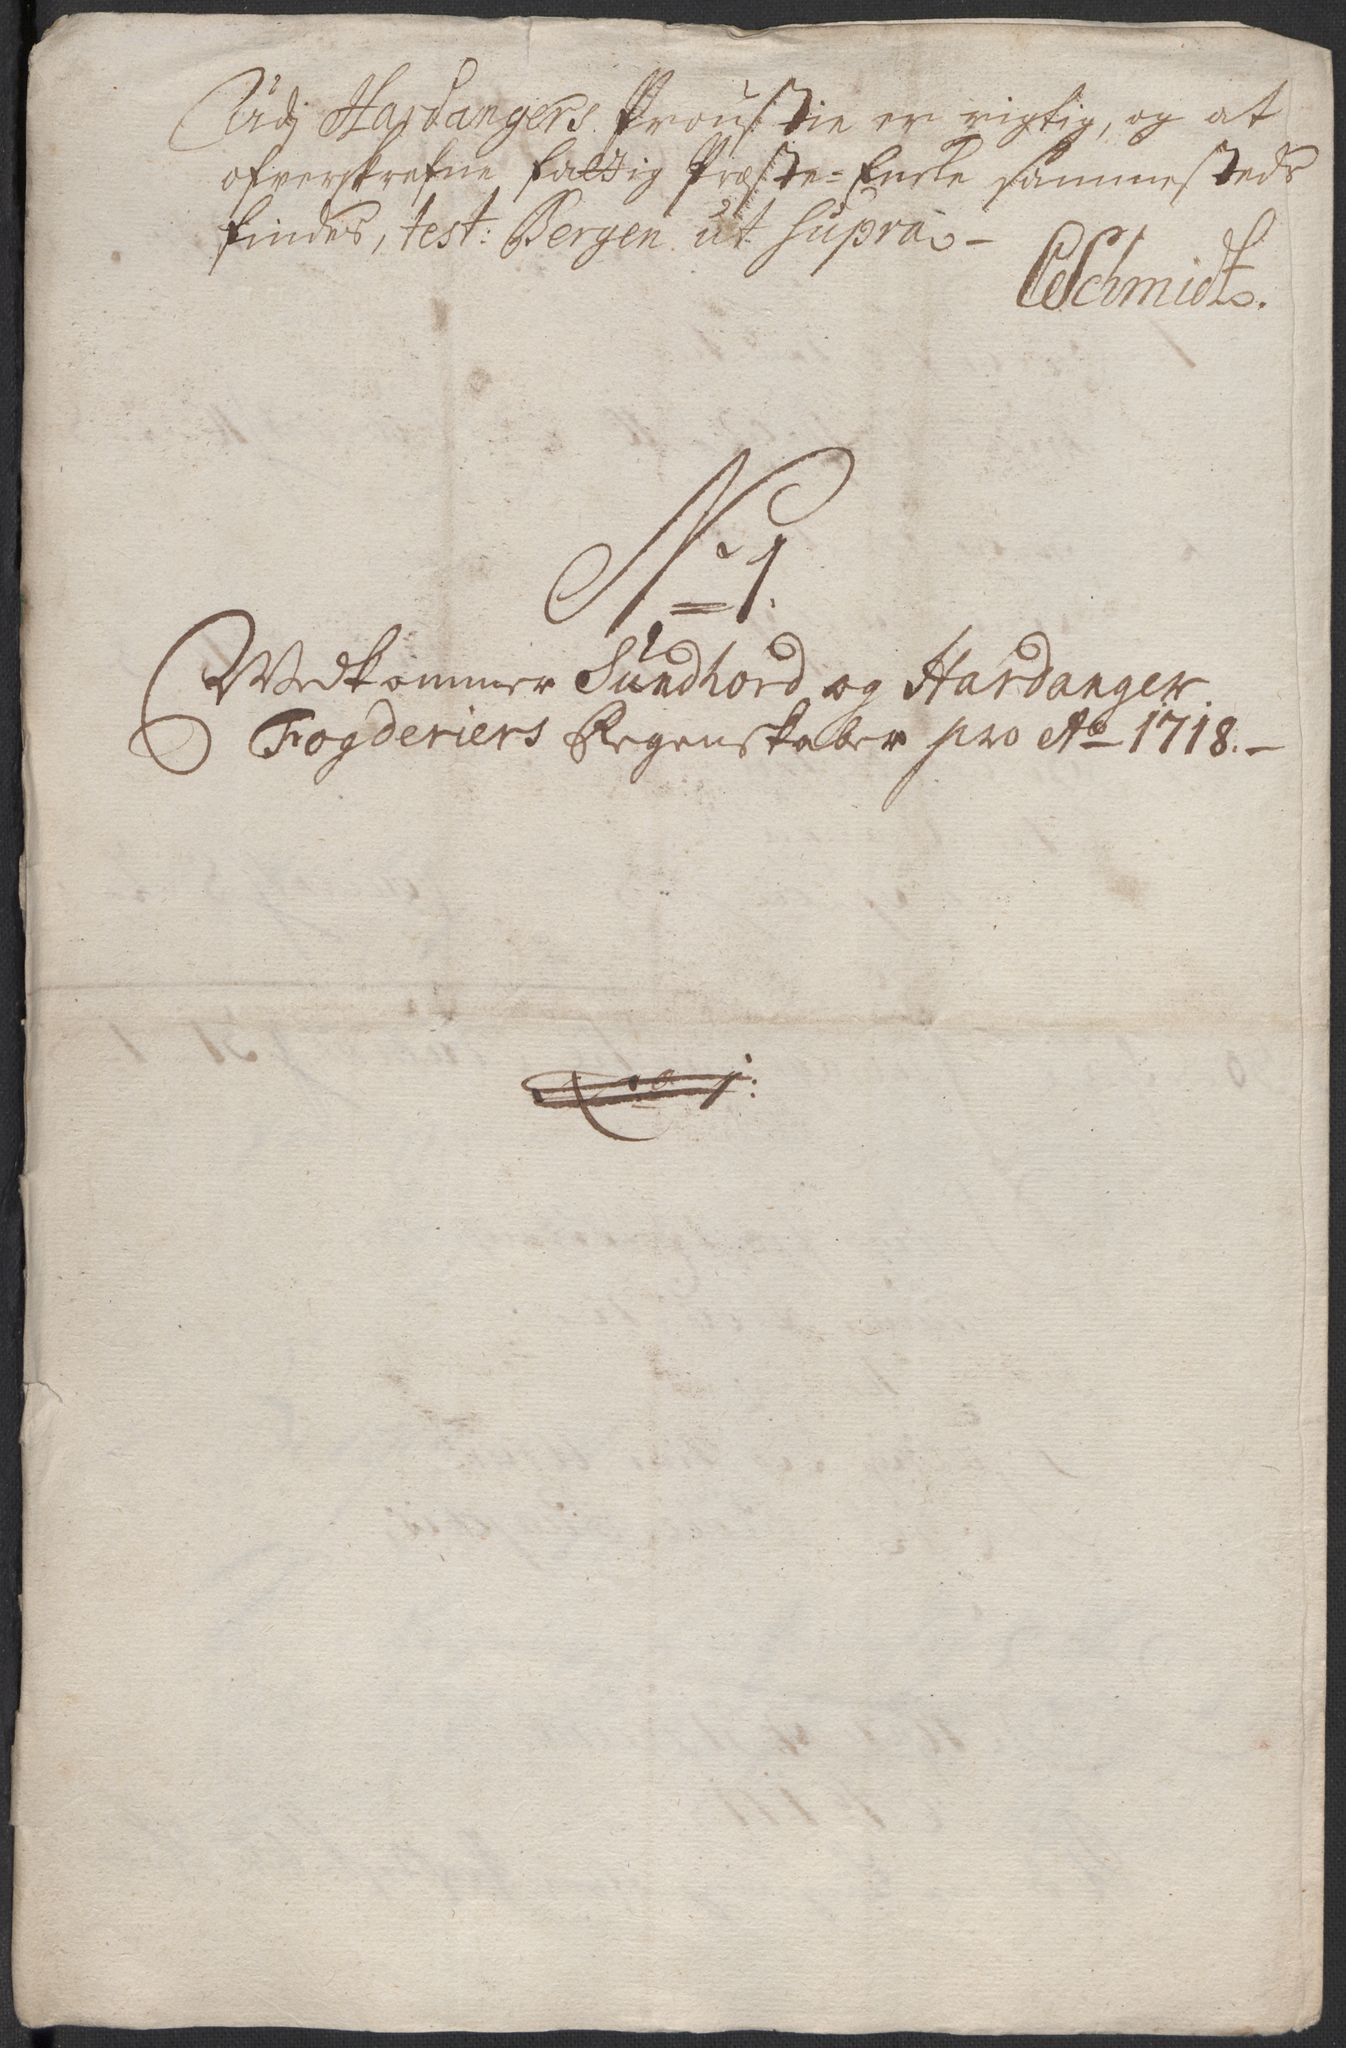 Udj Hardangers Proustie er rigtig, og at
ofverskrefne fattig Præste-Encke sammesteds
findes, test: Bergen ut supra. –
CSchmidt.
No 1.
Vedkommer Sundhord og Hardanger
Fogderiers Regenskaber pro Ao 1718. –